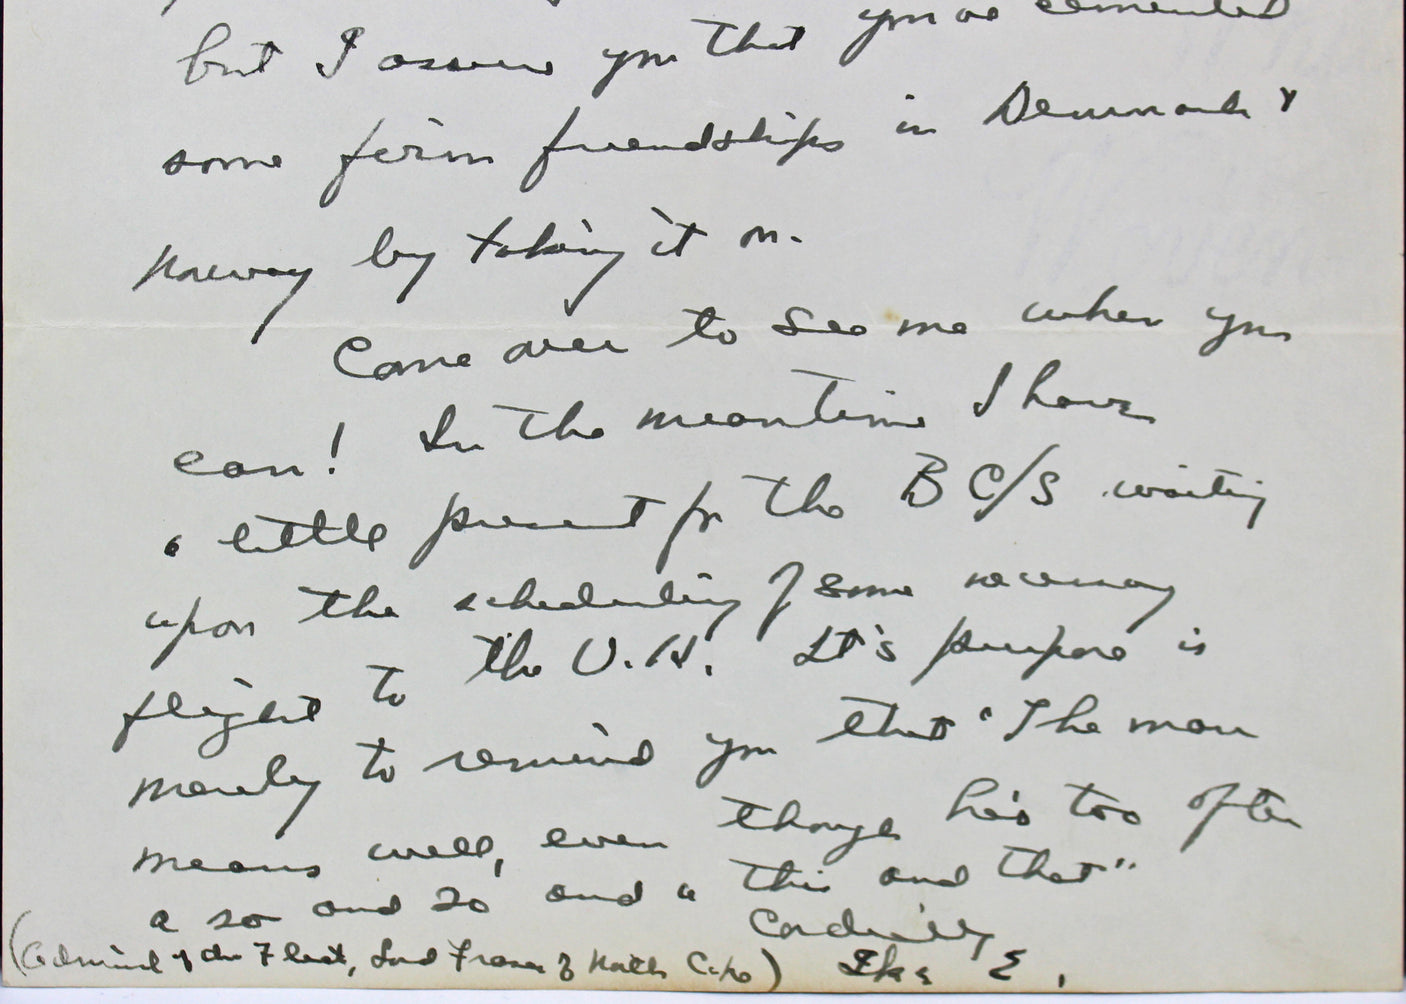 you've cemented
but I assure you that
some firm friendships in Denmark &
Norway by taking it on.
Come over to see me when you
can! In the meantime I have
a little present for the B C/S waiting
upon the scheduling of some necessary
flight to the U.K. It's purpose is
merely to remind you that "The man
means well, even though he's too often
a so and so and a this and that"
Cordially
(Admiral of the Fleet, Lord Fraser of North Cape) Ike E.